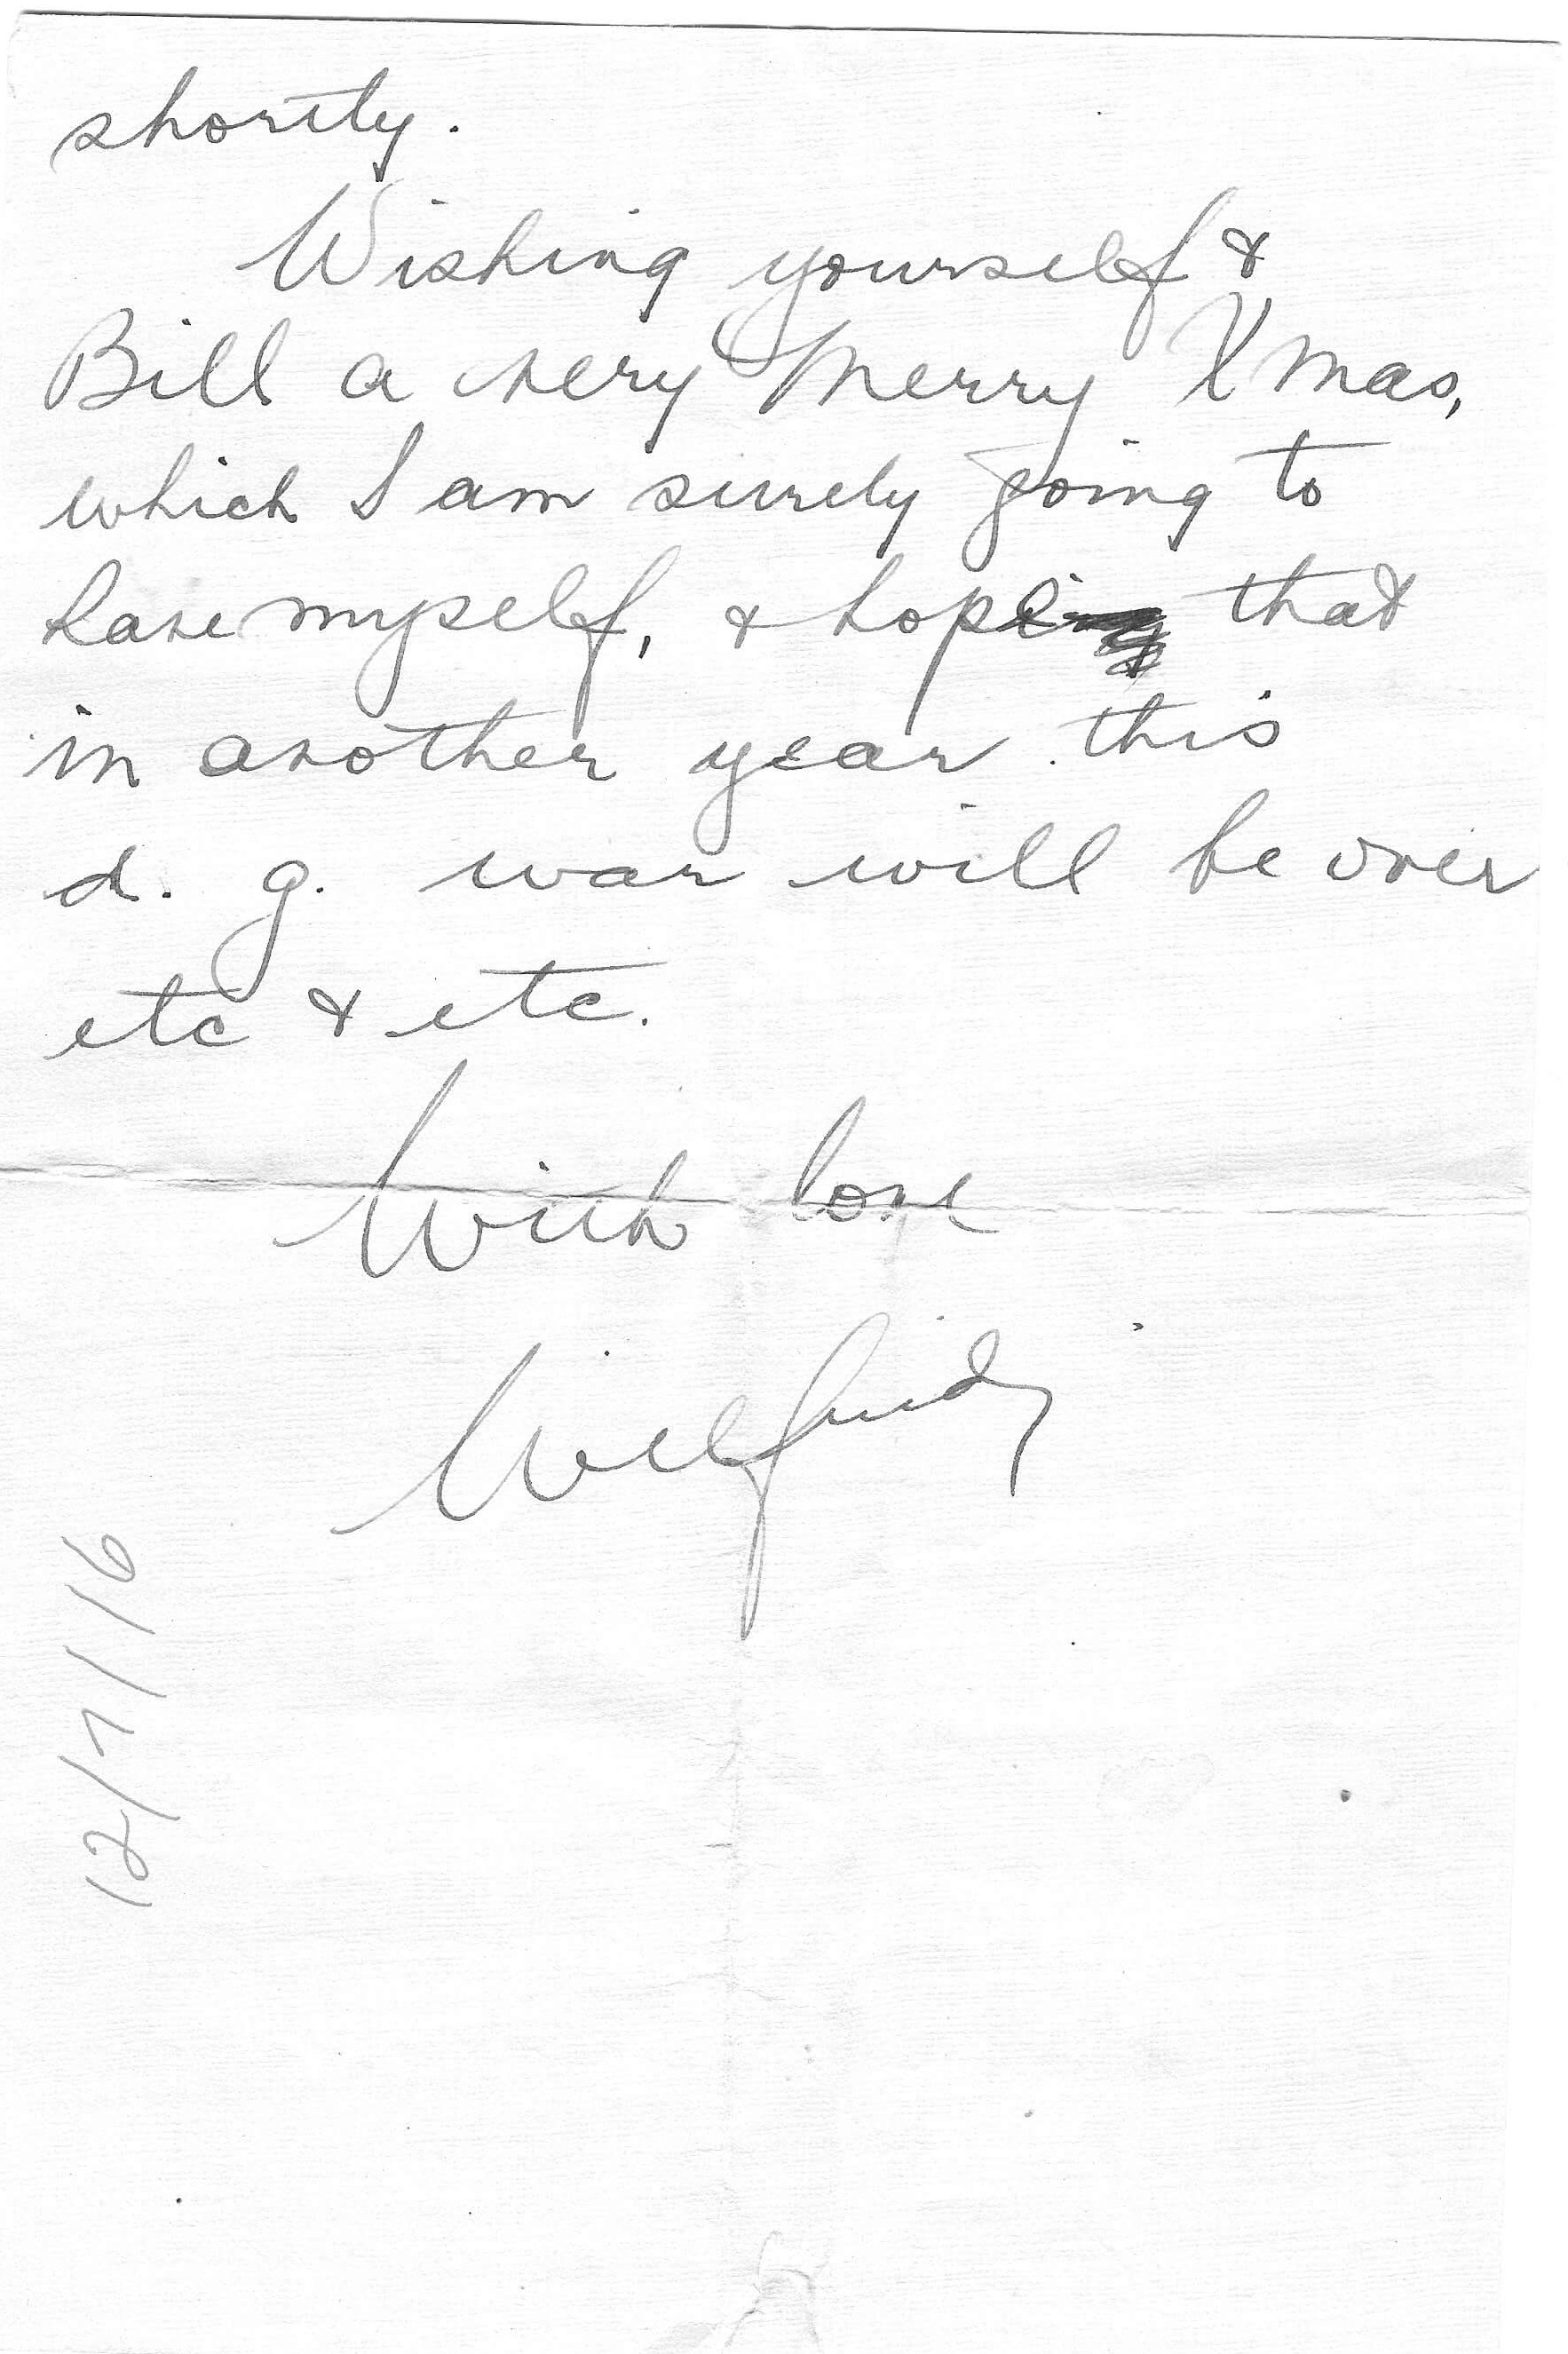 shortly.
Wishing yourself &
Bill a very Merry Xmas,
which I am surely going to
have myself, & hope that
in another year this
d. g. war will be over
etc & etc.
With love
Wilfrid
12/7/16